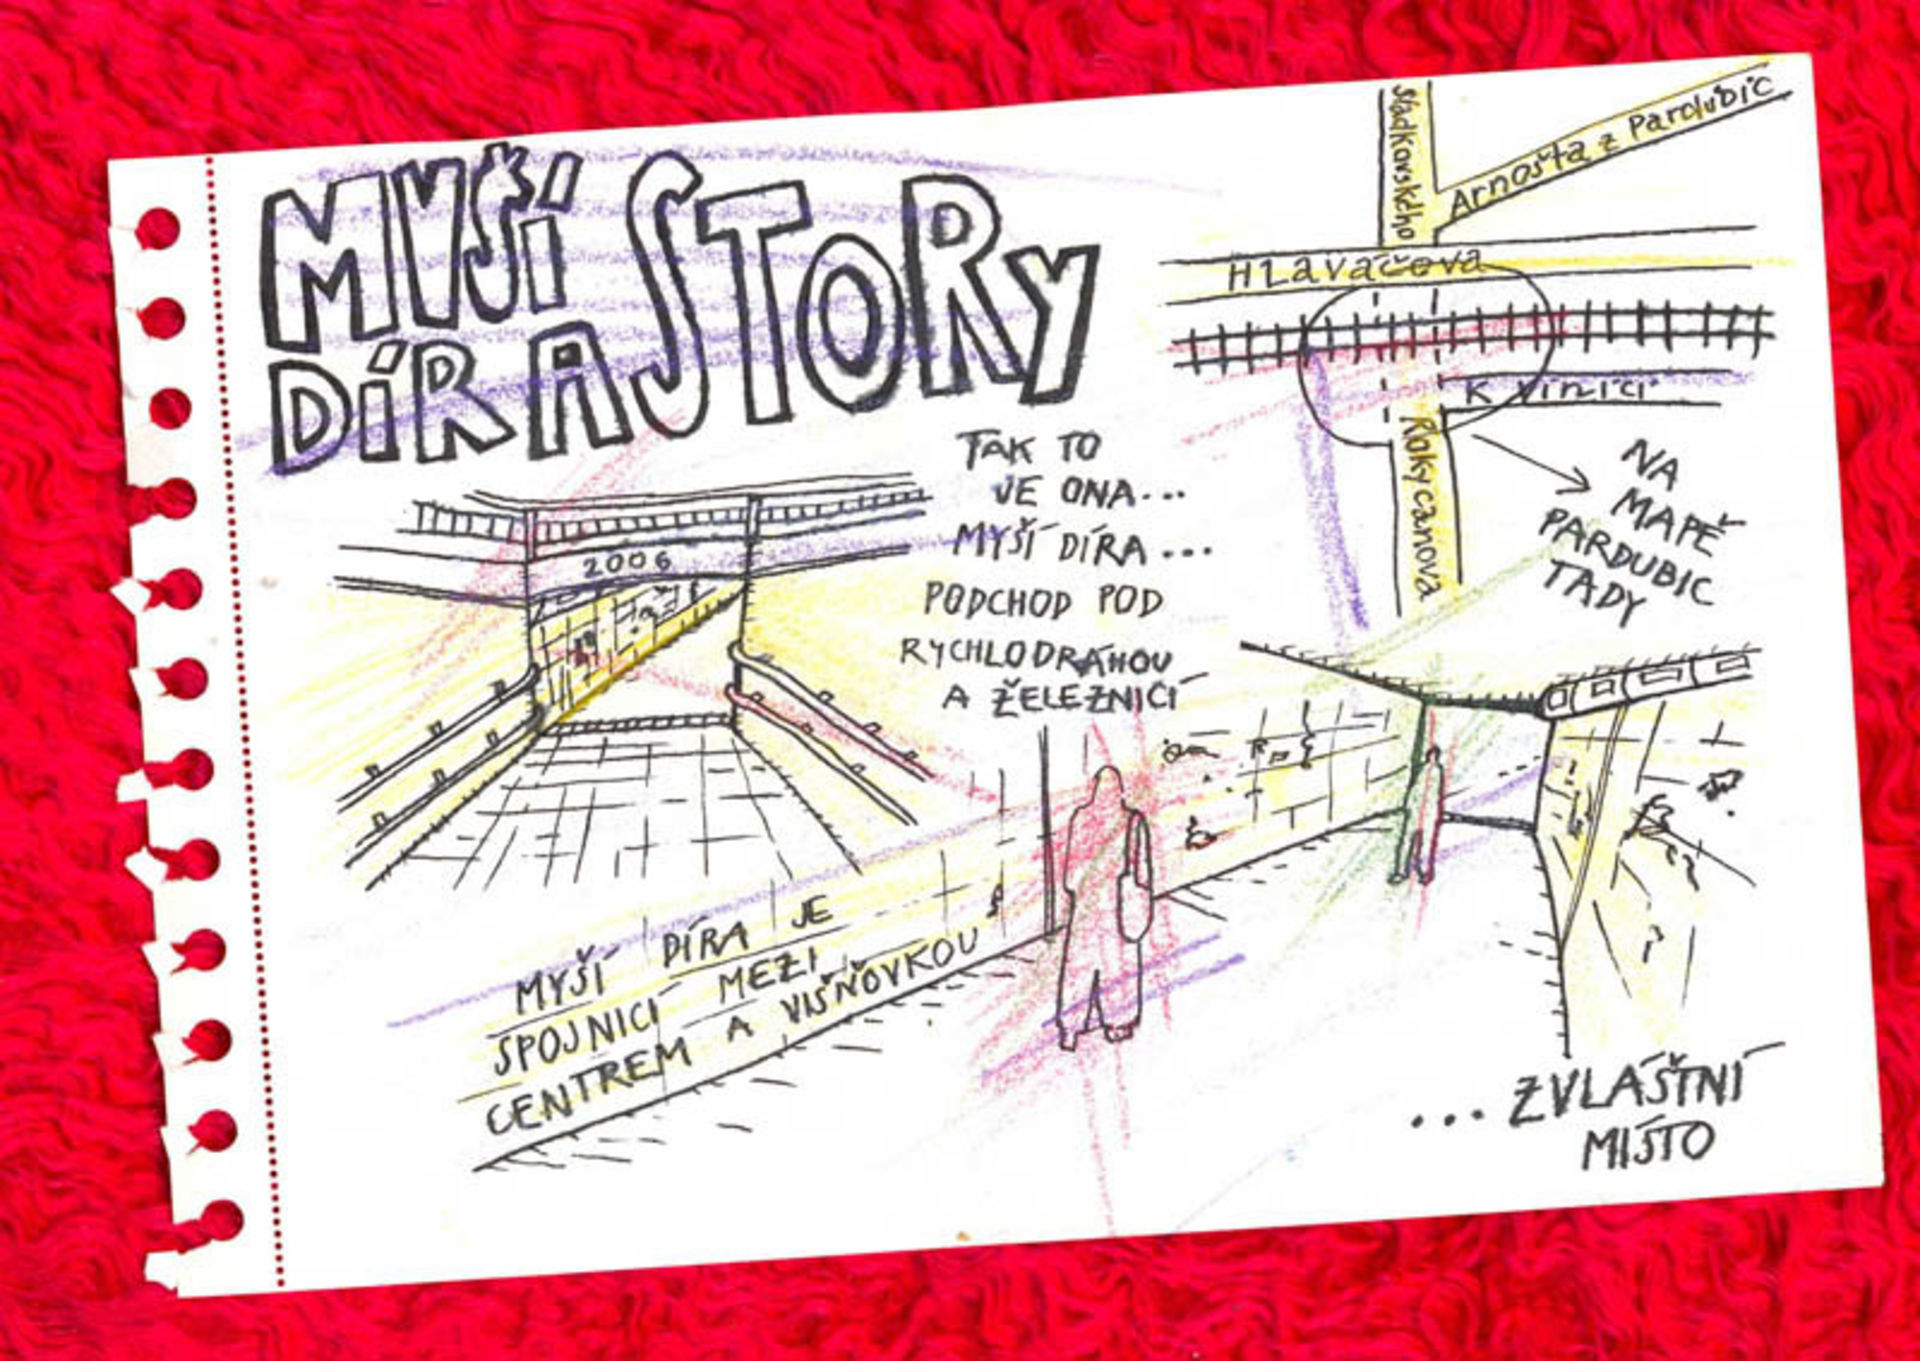 MYŠÍ
DÍRA STORY
Sladkovského
Arnošta z Pardubic
Hlaváčova
K Vinici
Rokycanova
NA
MAPĚ
PARDUBIC
TADY
TAK TO
JE ONA...
MYŠÍ DÍRA...
PODCHOD POD
RYCHLODRÁHOU
A ŽELEZNICÍ
2006
MYŠÍ DÍRA JE
SPOJNICÍ MEZI
CENTREM A VIŠŇOVKOU
... ZVLÁŠTNÍ
MÍSTO